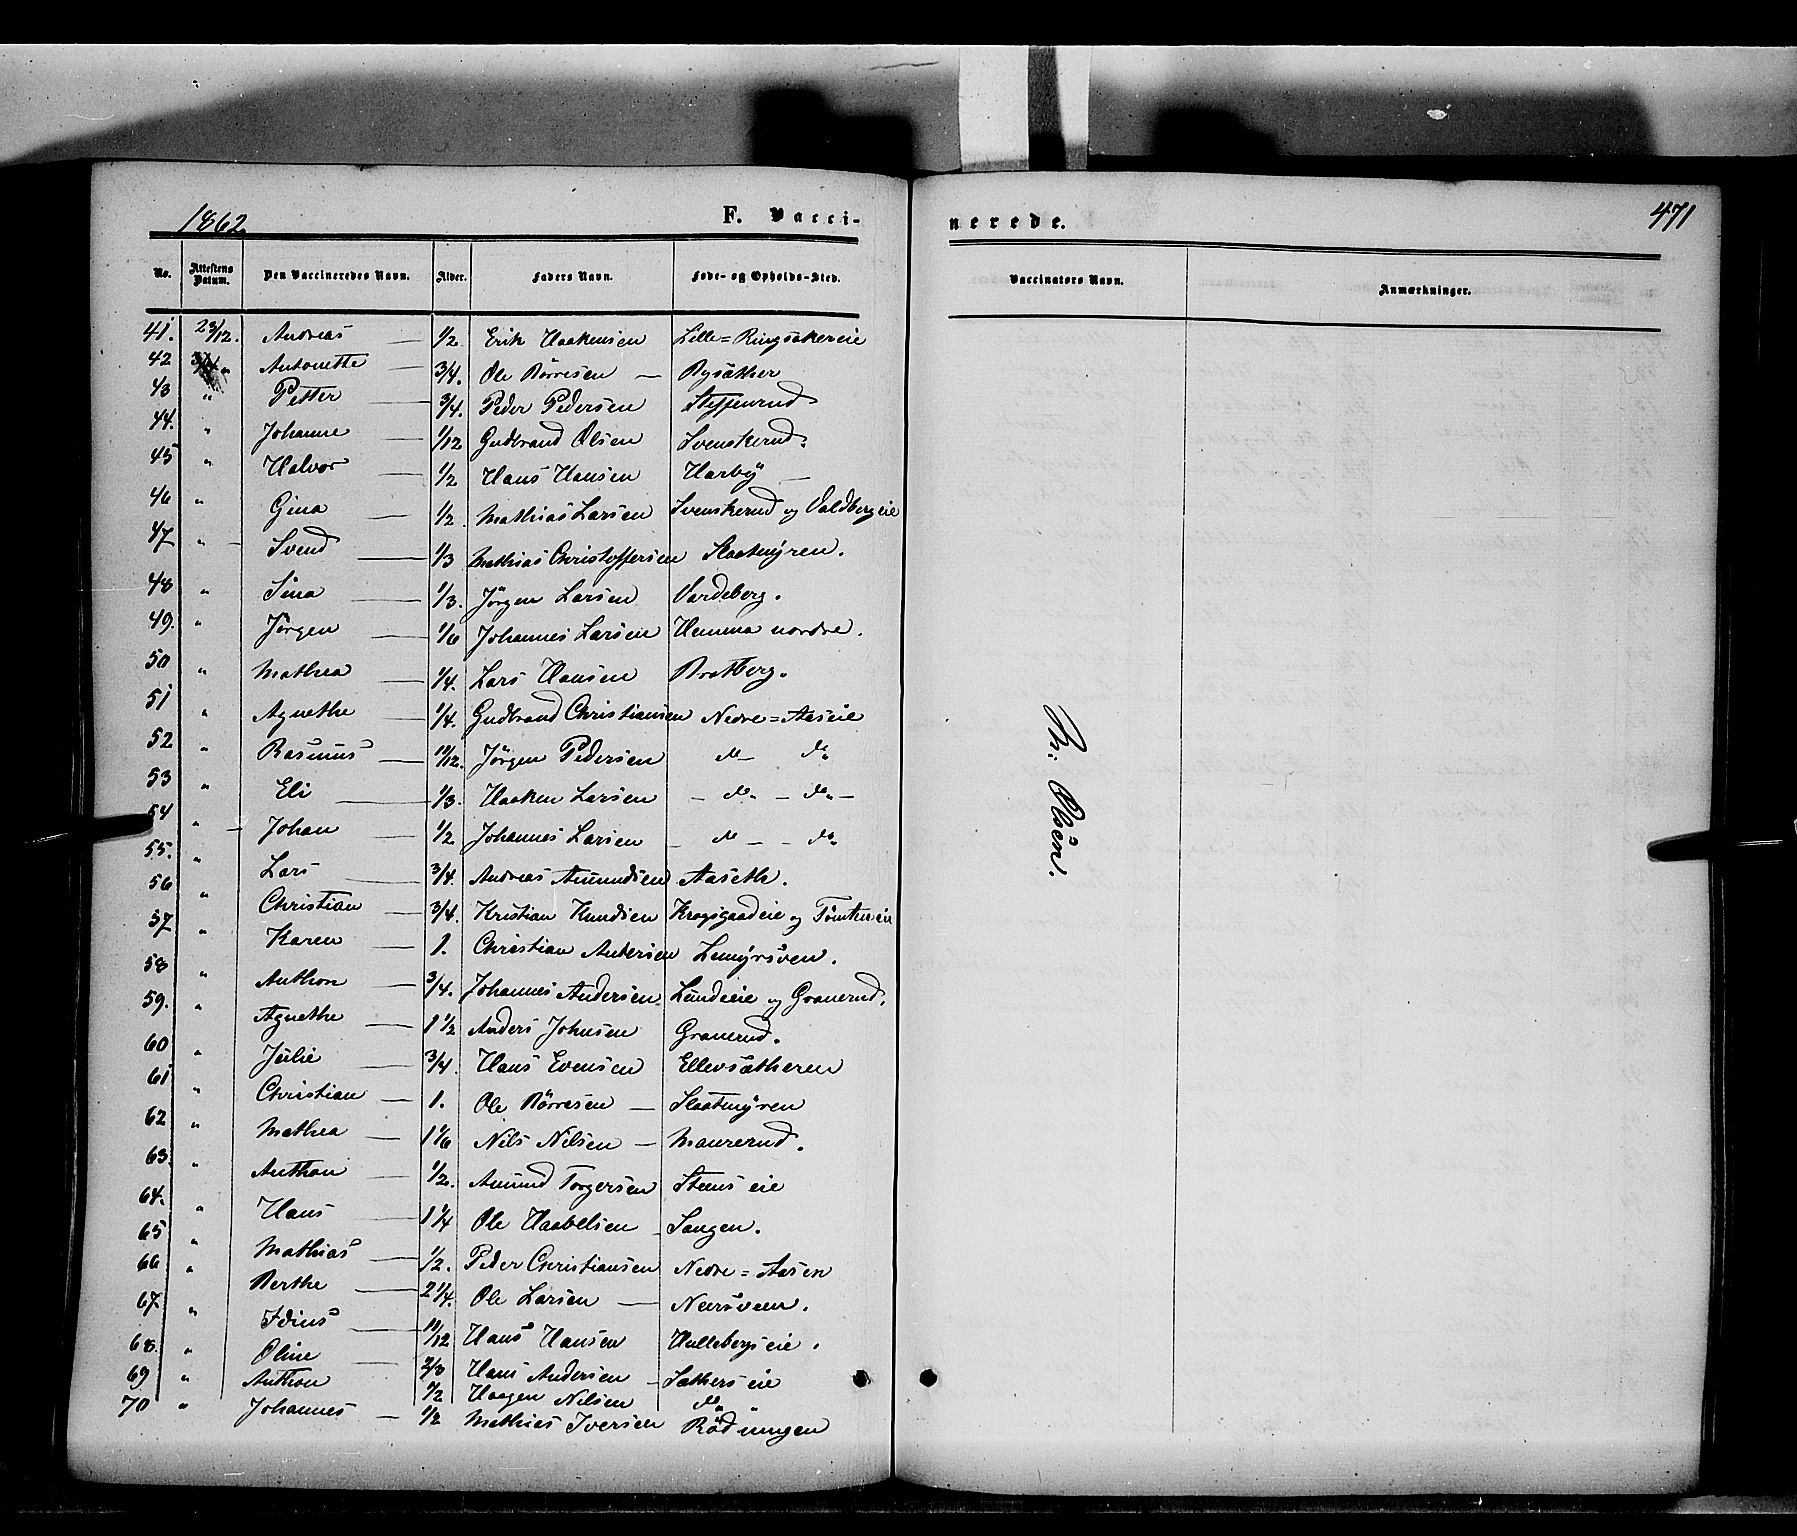 1862. F. Vacci-
No. Attestens Datum. Den Vaccineredes Navn. Alder. Faders Navn. Føde- og Opholds-Sted.
41. 23/12. Andreas — 1/2. Erik Haakensen Lille=Ringsakereie
42 " Antonette — 3/4. Ole Börresen — Rysæther
43 " Petter — 3/4. Peder Pedersen Steffenrud
44. " Johanne — 1/12 Gudbrand Olsen Svenskerud.
45 " Halvor — 1/2 Hans Hansen Harby —
46 " Gina — 1/2. Mathias Larsen Svenskerud og Valdbergeie
47 " — Svend — 1/3 Mathias Christoffersen Slaatmyren.
48 " Sina — 1/3. Jörgen Larsen Vardeberg.
49. " Jörgen — 1/6 Johannes Larsen Hemma nordre.
50 " Mathea — 1/4. Lars Hansen Bratberg.
51 " Agnethe — 1/4. Gudbrand Christiansen Nedre=Aaseie
52 " Rasmus — 11/12. Jörgen Pedersen do do
53 " Eli — 1/3. Haaken Larsen — do — do —
54 " — Johan — 1/2. Johannes Larsen — do — - do
55. " Lars — 3/4. Andreas Amundsen Aaseth.
56 " Christian — 3/4. Kristian Knudsen Krogsgaardeie og
57 " Karen — 1. Christian Andersen Lemyrsven.
58 " Anthon — 3/4. Johannes Andersen Lundeie og Granerud.
59. " Agnethe — 1 1/2 Anders Johnsen Granerud.
60 " Julie — 3/4. Hans Evensen Ellevsætheren
61 " Christian — 1. Ole Börresen — Slaatmyren
62 " Mathea — 1 1/6 Nils Nilsen — Maurerud.
63. " Anthon — 1/2. Amund Torgersen Stenseie
64. " Hans — 1 1/4 Ole Haavelsen Sangen.
65 " Mathias — 1/2. Peder Christiansen Nedre=Aasen
66 " Berthe 2 1/4. Ole Larsen —
67. " Idius — 11/12 Hans Hansen Hullebergseie.
68. " Oline — 2/3 Hans Andersen — Sætherseie
69 " Anthon 1/2 Haagen Nilsen do
70 " Johannes — 1/2 Mathias Iversen Rödningen
nerede. 471
Vaccinators Navn. Anmærkninger.
Olsen.